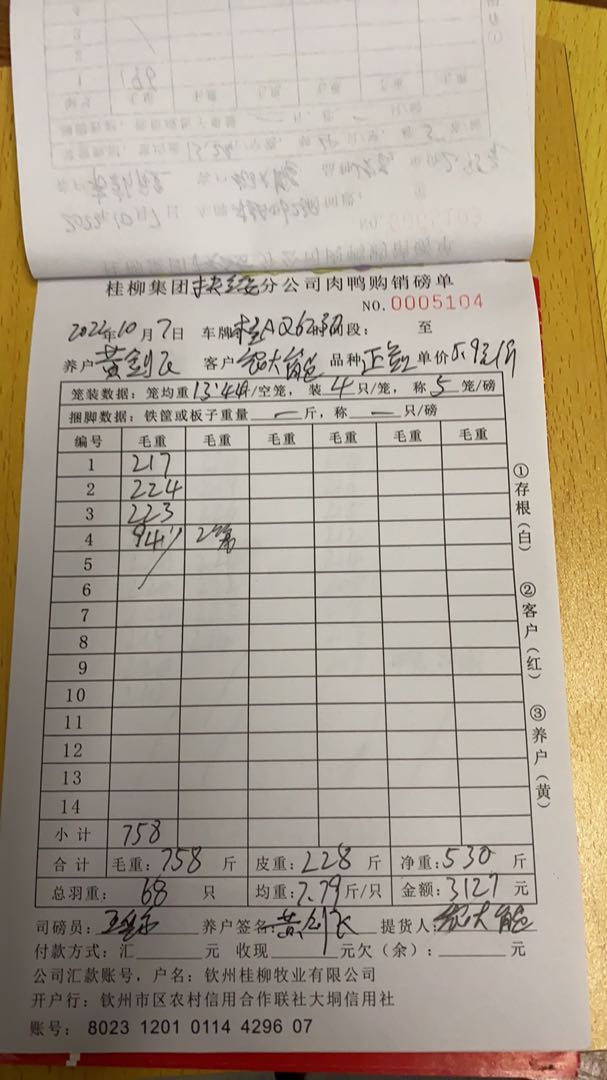 桂柳集团 分公司肉鸭购销磅单
NO. 0005104
2022年10月7日 车牌 桂AQ6 时间段： 至
养户 黄剑飞 客户 品种 正 单价5.9元/斤
笼装数据：笼均重13.4斤/空笼，装4只/笼，称5笼/磅
捆脚数据：铁筐或板子重量 一 斤，称 一 只/磅
编号 毛重 毛重 毛重 毛重 毛重 毛重
1 217
2 224
3 223
4 94 2笼
5
6
7
8
9
10
11
12
13
14
小计 758
合计 毛重：758 斤 皮重：228 斤 净重：530 斤
总羽重： 68 只 均重：7.79斤/只 金额：3127元
司磅员： 养户签名：黄剑飞 提货人：
付款方式：汇 元 收现 元欠（余）： 元
公司汇款账号，户名：钦州桂柳牧业有限公司
开户行：钦州市区农村信用合作联社大垌信用社
账号： 8023 1201 0114 4296 07
①存根（白） ②客户（红） ③养户（黄）